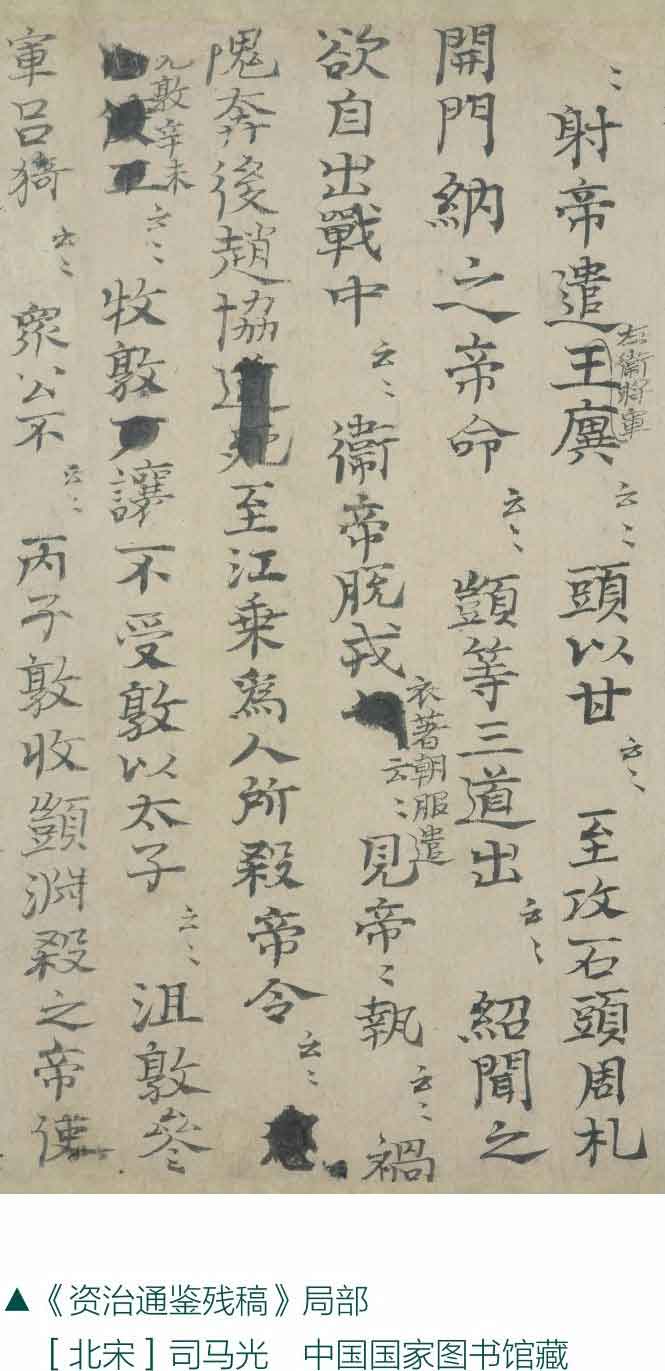 〻射帝遣王廙左衛將軍云〻頭以甘云〻至攻石頭周札
開門納之帝命云〻顗等三道出云〻紹聞之
欲自出戰中云〻衛帝脫戎衣著朝服遣云〻見帝〻執云〻禍
隗奔後趙協至江乘為人所殺帝令云〻
敦辛未云〻牧敦讓不受敦以太子云〻沮敦參
軍呂猗云〻衆公不云〻丙子敦收顗淵殺之帝使
▲《资治通鉴残稿》局部
[北宋]司马光 中国国家图书馆藏